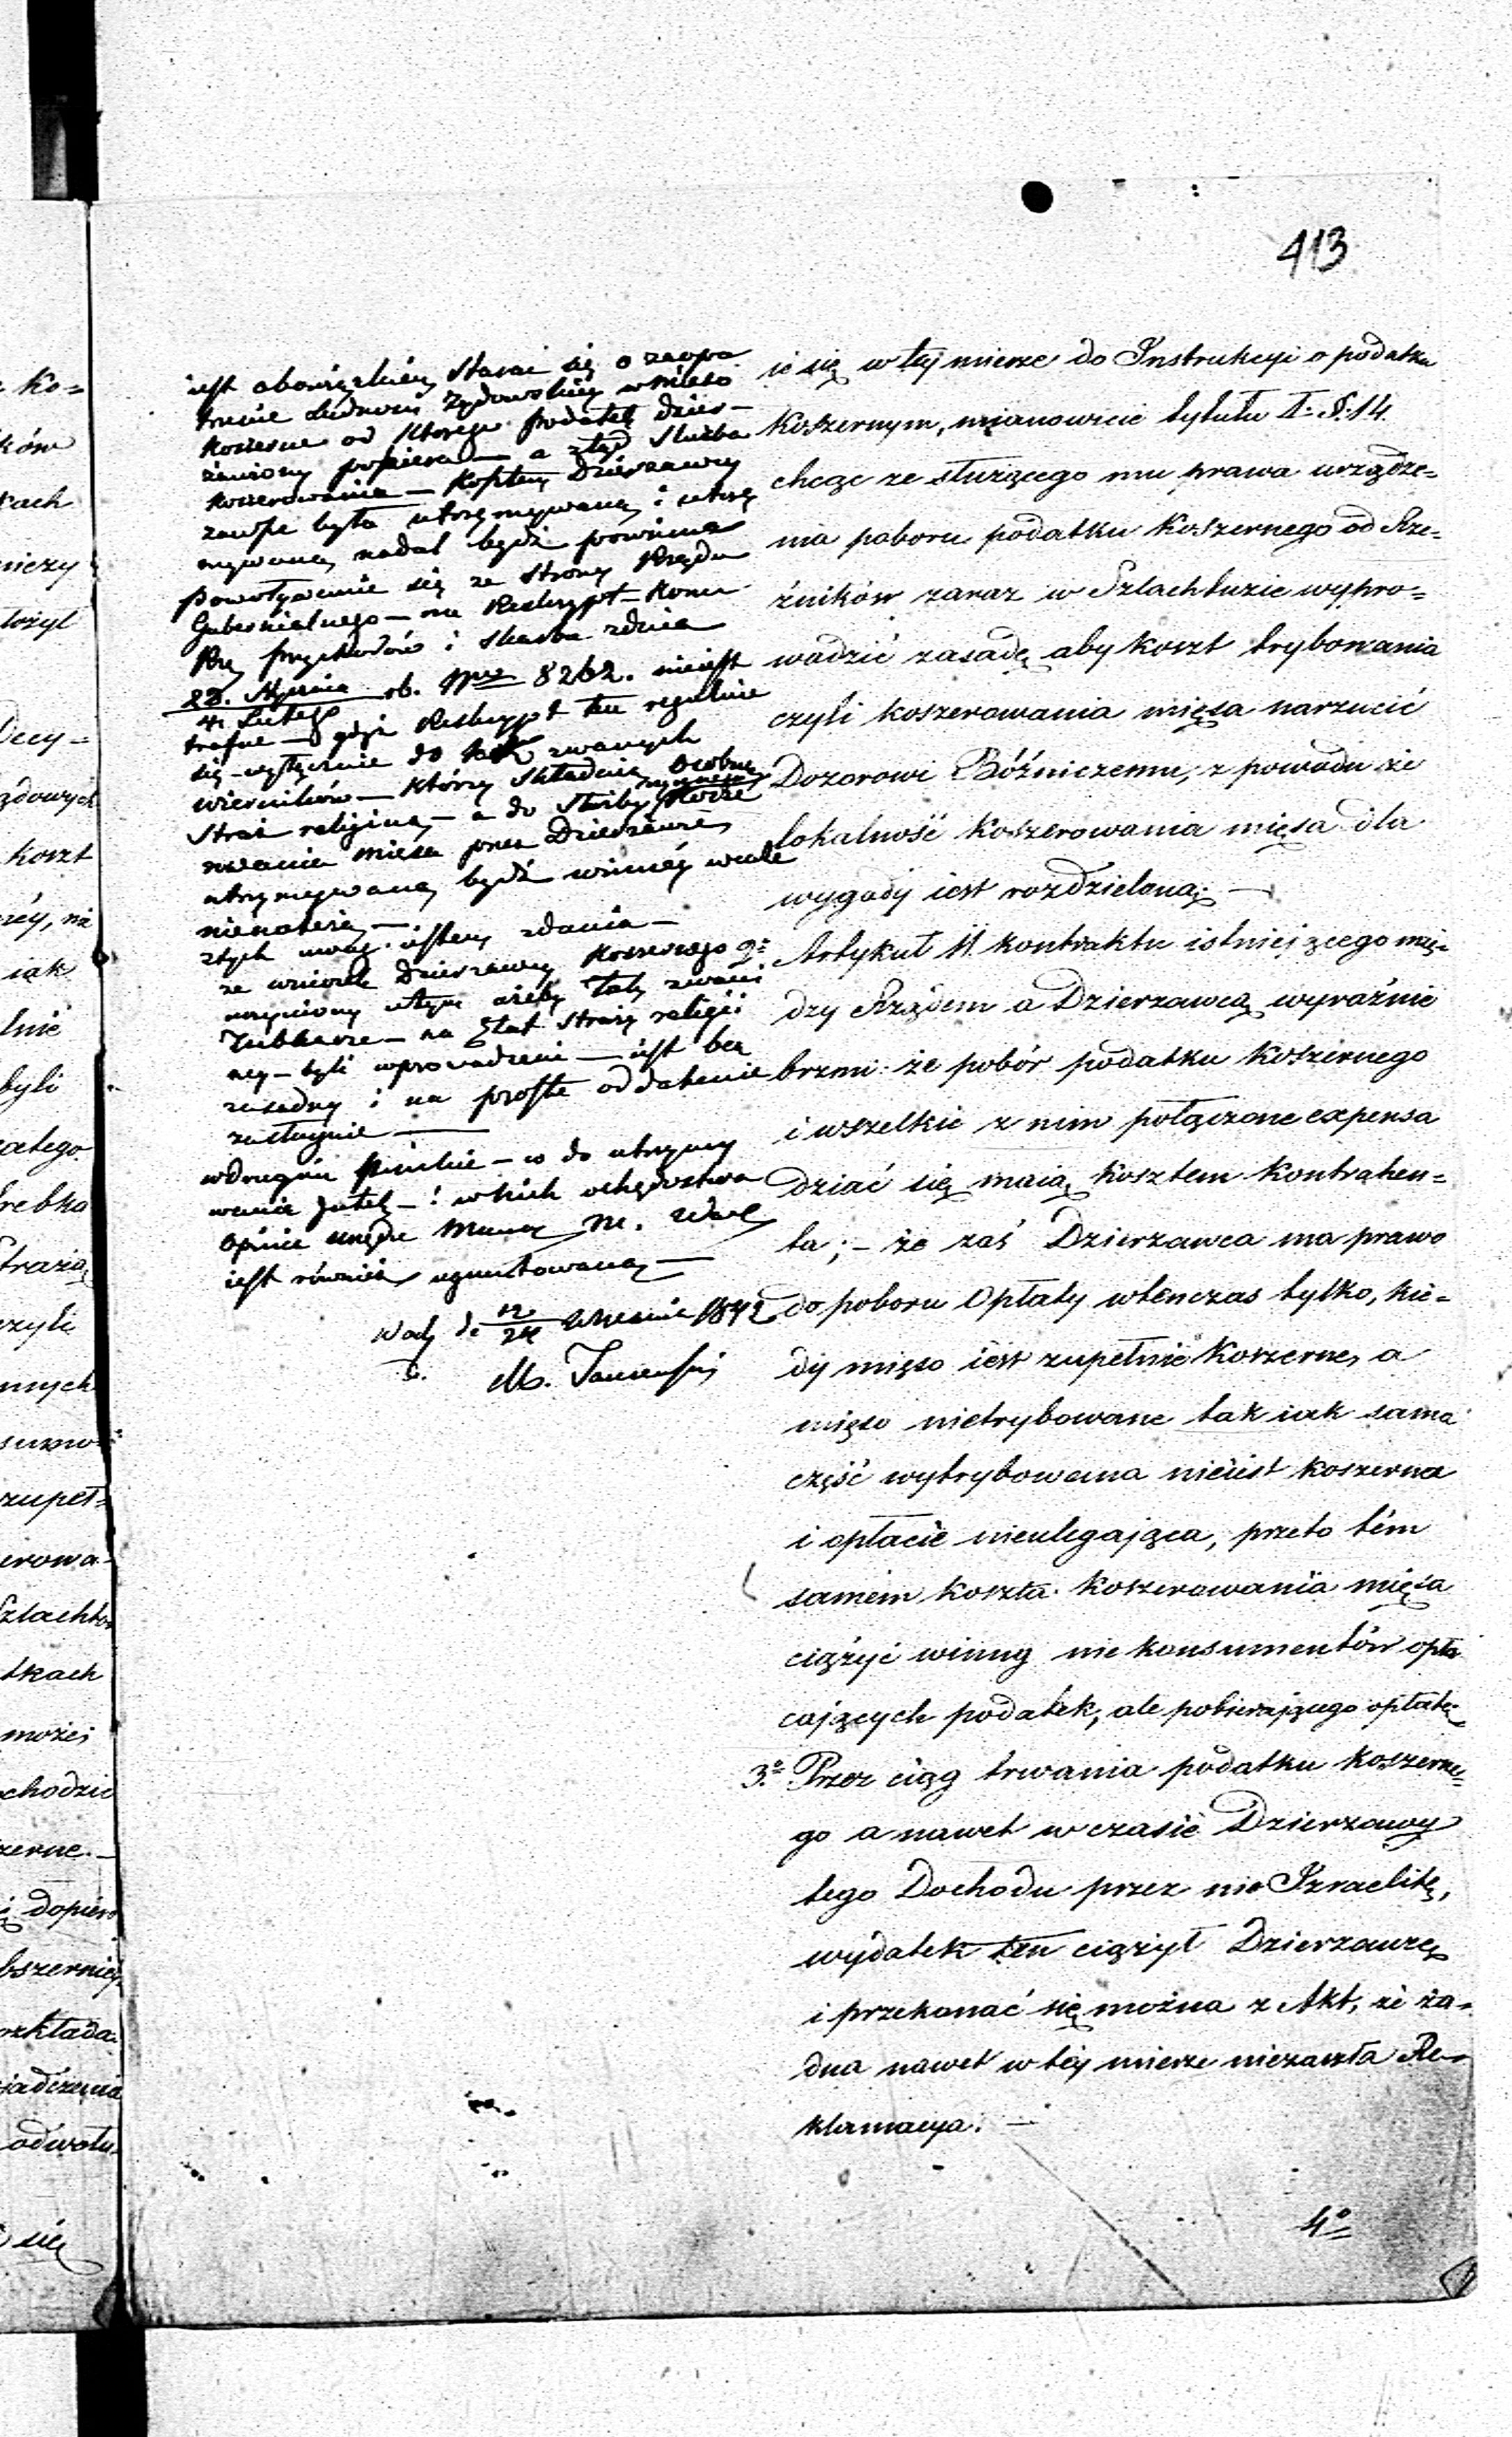 413
iest obowiązkiem starać się o zaopa
trzenie Ludności Żydowskiey w Mięso
koszerne od którego podatek dzier-
żawiony pobiera — a ztąd Służba
koszerowania — kosztem Dzierzawcy
zawsze była utrzymywaną i utrzy
mywaną nadal bydź powinna
powoływanie się ze strony Rządu
Gubernialnego — na Reskrypt Kom
Rzą przychodów i Skarbu z dnia
23. Stycznia / 4 Lutego rb. Nro 8262. nieiest
trafne — gdyż Reskrypt ten
się wyłącznie do tak zwanych
wierników — którzy składaią osobną
Straż religiina — a do Służby
mięsa przez Dzierżawcę
utrzymywaną bydź winnéy wcale
nienależą —
z tych uwag iestem zdania —
że wniosek Dzierzawcy koszernego
uczyniony w tym ażeby tak zwani
— na Etat Straży religii
ney — byli wprowadzeni — iest bez
zasadny i na proste oddalenie
zasługuie —
w drugim punkcie — co do utrzymy
wania Jatek — i w nich ochędóstwa
opinia urzędu Muny M. Warsz
iest również ugruntowaną —
d. 12/24 Września 1842
M.
ie się w téj mierze do Instrukcyi o podatku
koszernym, mianowicie tytułu I. §. 14.
chcąc ze służącego mu prawa urządze=
nia poboru podatku koszernego od Rze=
źników zaraz w Szlachtuzie wypro=
wadzić zasadę aby koszt trybowania
czyli koszerowania mięsa narzucić
Dozorowi Bóźniczemu, z powodu że
lokalność koszerowania mięsa dla
wygody iest rozdzieloną; —
2º Artykuł 11. kontraktu istniejącego mię=
dzy Rządem a Dzierzawcą wyraźnie
brzmi: że pobór podatku koszernego
i wszelkie z nim połączone expensa
dziać się maią kosztem kontrahen=
ta; — że zaś Dzierzawca ma prawo
do poboru Opłaty wtenczas tylko, kie=
dy mięso iest zupełnie koszerne, a
mięso nietrybowane tak iak sama
część wytrybowana nieiest koszerna
i opłacie nieulegająca, przeto tém
samém koszta koszerowania mięsa
ciążyć winny nie konsumentów opła
cających podatek, ale pobierającego opłatę
3º Przez ciąg trwania podatku koszerne=
go a nawet w czasie Dzierzawy
tego Dochodu przez nie Izraelitę,
wydatek ten ciążył Dzierzawcę
i przekonać się można z Akt, że ża=
dna nawet w téy mierze niezaszła Re=
klamacya. —
4º